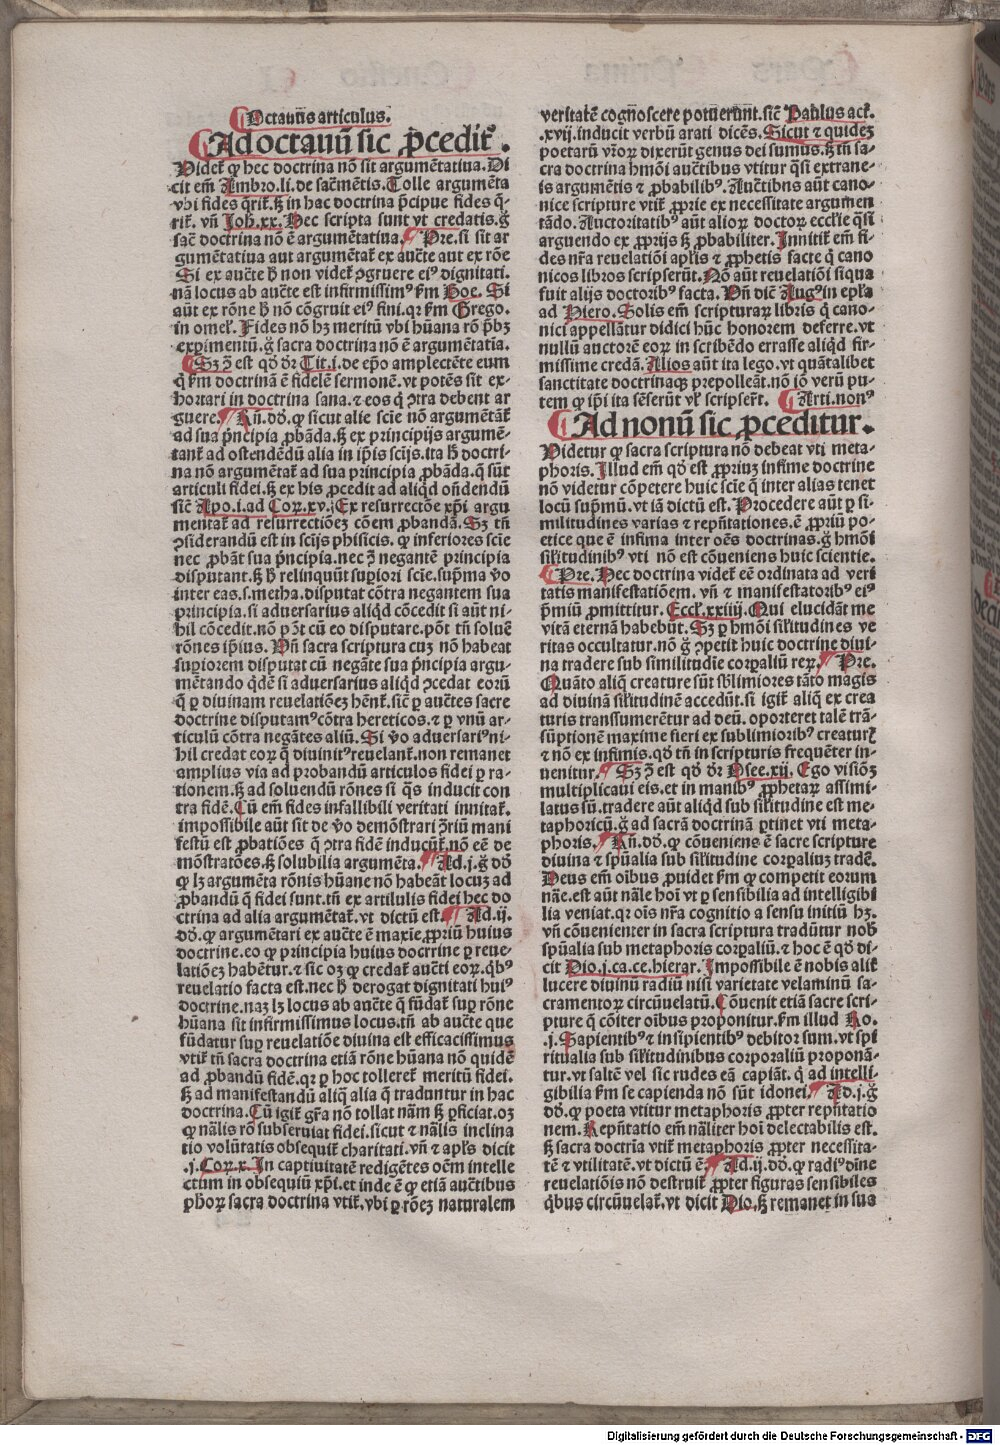 Octauus articulus.
Ad octauū sic ꝓcedit̃.
Videt̃ ꝙ hec doctrina nō sit argumētatiua. Di
cit em̄ Ambro. li. de sacm̄etis. Tolle argumēta
vbi fides q̄rit̃. sꝫ in hac doctrina p̄cipue fides q̄-
rit̃. vn̄ Joh. xx. Hec scripta sunt vt credatis. g̊
sac̄ doctrina nō ē argumētatiua. Pre. si sit ar
gumētatiua aut argumētat̃ ex aucte aut ex rōe
Si ex aucte h̄ non videt̃ ꝯgruere ei⁹ dignitati.
nā locus ab aucte est infirmissim⁹ ẜm Boe. Si
aūt ex rōne h̄ nō cōgruit ei⁹ fini. qr ẜm Grego.
in omel. Fides nō hꝫ meritū vbi hūana rō p̄bꝫ
exꝑimentū. g̊ sacra doctrina nō ē argumētatīa.
Sꝫ ꝯ̄ est qd̄ dr̄ Tit. i. de ep̄o amplectēte eum
q̄ ẜm doctrinā ē fidelē sermonē. vt potēs sit ex-
hortari in doctrina sana. ⁊ eos q̄ ꝯtra debent ar
guere. Rn̄. dd̄. ꝙ sicut alie scīe nō argumētāt̃
ad sua p̄ncipia ꝓbāda. sꝫ ex principijs argumē-
tant̃ ad ostendēdū alia in ip̄is scijs. ita h̄ doctri-
na nō argumētat̃ ad sua principia ꝓbāda. q̄ sūt
articuli fidei. sꝫ ex his ꝓcedit ad aliqd on̄dendū
sic̄ Apo. i. ad Coꝝ. xv. Ex resurrectōe xp̄i argu
mentat̃ ad resurrectiōeꝫ cōem ꝓbandā. Sꝫ tn̄
ꝯsiderandū est in scijs phisicis. ꝙ inferiores scīe
nec ꝓbāt sua p̄ncipia. nec ꝯ̄ negantē principia
disputant. sꝫ h̄ relinquūt suꝑiori scīe. sup̄ma v̊o
inter eas. s. metha. disputat cōtra negantem sua
principia. si aduersarius aliqd cōcedit si aūt ni-
hil cōcedit. nō pōt cū eo disputare. pōt tn̄ soluē
rōnes ip̄ius. Vn̄ sacra scriptura cuꝫ nō habeat
suꝑiorem disputat cū negāte sua p̄ncipia argu-
mētando qdē si aduersarius aliqd ꝯcedat eorū
q̄ ꝑ diuinam reuelatiōeꝫ hēnt̃. sic̄ ꝑ auctes sacre
doctrine disputam⁹ cōtra hereticos. ⁊ ꝑ vnū ar-
ticulū cōtra negātes aliū. Si v̊o aduersari⁹ ni-
hil credat eoꝝ q̄ diuinit⁹ reuelant̃. non remanet
amplius via ad probandū articulos fidei ꝑ ra-
tionem. sꝫ ad soluendū rōnes si q̄s inducit con
tra fidē. Cū em̄ fides infallibili veritati innitat̃.
impossibile aūt sit de v̊o demōstrari ꝯ̄riū mani
festū est ꝓbatiōes q̄ ꝯtra fidē inducūt̃. nō eē de
mōstratōes. sꝫ solubilia argumēta. Ad. j. g̊ dd̄
ꝙ lꝫ argumēta rōnis hūane nō habeāt locuꝫ ad
ꝓbandū q̄ fidei sunt. tn̄ ex artilulis fidei hec do
ctrina ad alia argumētat̃. vt dictū est. Ad. ij.
dd̄. ꝙ argumētari ex aucte ē maxīe ꝓpriū huius
doctrine. eo ꝙ principia huius docrrine ꝑ reue-
latiōeꝫ habētur. ⁊ sic oꝫ ꝙ credat̃ aucti eoꝝ. qb⁹
reuelatio facta est. nec h̄ derogat dignitati hui⁹
doctrine. naꝫ lꝫ locus ab aucte q̄ fūdat̃ suꝑ rōne
hūana sit infirmissimus locus. tn̄ ab aucte que
fūdatur suꝑ reuelatiōe diuina est efficacissimus
vtit̃ tn̄ sacra doctrina etiā rōne hūana nō quidē
ad ꝓbandū fidē. qr ꝑ hoc tolleret̃ meritū fidei.
sꝫ ad manifestandū aliq̄ alia q̄ traduntur in hac
doctrina. Cū igit̃ gr̄a nō tollat nām sꝫ ꝑficiat. oꝫ
ꝙ nālis rō subseruiat fidei. sicut ⁊ nālis inclina
tio volūtatis obsequit̃ charitati. vn̄ ⁊ apl̄s dicit
.j. Coꝝ. x. In captiuitatē redigētes oēm intelle
ctum in obsequiū xp̄i. et inde ē ꝙ etiā auctibus
ph̄oꝝ sacra doctrina vtit̃. vbi ꝑ rōeꝫ naturalem
veritatē cogn̄oscere potuerūnt. sic̄ Pahlus act.
.xvij. inducit verbū arati dicēs. Sicut ⁊ quideꝫ
poetarū vr̄oꝝ dixerūt genus dei sumus. sꝫ tn̄ sa-
cra doctrina hmōi auctibus vtitur qsi extrane-
is argumētis ⁊ ꝓbabilib⁹. Auctibns aūt cano-
nice scripture vtit̃ ꝓprie ex necessitate argumen
tādo. Auctoritatib⁹ aūt alioꝝ doctoꝝ eccl̄ie qsi
arguendo ex ꝓprijs sꝫ ꝓbabiliter. Innitit̃ em̄ fi-
des nr̄a reuelatiōi apl̄is ⁊ ꝓphetis facte q̄ cano
nicos libros scripserūt. Nō aūt reuelatiōi siqua
fuit alijs doctorib⁹ facta. Vn̄ dic̄ Aug⁹ in epl̄a
ad Hiero. Solis em̄ scripturaꝝ libris q̄ cano-
nici appellātur didici hūc honorem deferre. vt
nullū auctorē eoꝝ in scribēdo errasse aliqd fir-
missime credā. Alios aūt ita lego. vt quātalibet
sanctitate doctrinaqꝫ prepolleāt. nō iō verū pu-
tem ꝙ ip̄i ita sēserūt vl̄ scripser̄t. Arti. non⁹
Ad nonū sic ꝓceditur.
Videtur ꝙ sacra scriptura nō debeat vti meta-
phoris. Illud em̄ qd̄ est ꝓpriuꝫ infime doctrine
nō videtur cōpetere huic scīe q̄ inter alias tenet
locū sup̄mū. vt iā dictū est. Procedere aūt ꝑ si-
militudines varias ⁊ repn̄tationes. ē ꝓpriū po-
etice que ē infima inter oēs doctrinas. g̊ hmōi
sil̄itudinib⁹ vti nō est cōueniens huic scientie.
Pre. Hec doctrina videt̃ eē ordinata ad veri
tatis manifestatiōem. vn̄ ⁊ manifestatorib⁹ ei⁹
p̄miū ꝓmittitur. Eccl̄. xxiiij. Qui elucidāt me
vitā eternā habebūt. Sꝫ ꝑ hmōi sil̄itudines ve
ritas occultatur. nō g̊ ꝯpetit huic doctrine diui
na tradere sub similitudīe corꝑaliū reꝝ. Pre.
Quāto aliq̄ creature sūt sb̄limiores tāto magis
ad diuinā sil̄itudinē accedūt. si igit̃ aliq̄ ex crea
turis transsumerētur ad deū. oporteret talē trā-
sūptionē maxime fieri ex sublimiorib⁹ creatur̄
⁊ nō ex infimis. qd̄ tn̄ in scripturis frequēter in-
uenitur. Sꝫ ꝯ̄ est qd̄ dr̄ Osee. xij. Ego visiōꝫ
multiplicaui eis. et in manib⁹ ꝓphetaꝝ assimi-
latus sū. tradere aūt aliqd sub sil̄itudine est me-
taphoricū. g̊ ad sacrā doctrinā ꝑtinet vti meta-
phoris. Rn̄. dd̄. ꝙ cōueniens ē sacre scripture
diuina ⁊ spūalia sub sil̄itudine corꝑaliuꝫ tradē.
Deus em̄ oībus ꝓuidet ẜm ꝙ competit eorum
nāe. est aūt nāle hoi vt ꝑ sensibilia ad intelligibi
lia veniat. qr oīs nr̄a cognitio a sensu initiū hꝫ.
vn̄ cōuenienrer in sacra scriptura tradūtur nob̄
spūalia sub metaphoris corꝑaliū. ⁊ hoc ē qd̄ di-
cit Dio. j. ca. ce. hierar. Impossibile ē nobis alit̃
lucere diuinū radiū nisi varietate velaminū sa-
cramentoꝝ circūuelatū. Cōuenit etiā sacre scri-
pture q̄ cōiter oībus proponitur. ẜm illud Ro.
.j. Sapientib⁹ ⁊ insipientib⁹ debitor sum. vt spi
ritualia sub sil̄itudinibus corporaliū proponā-
tur. vt saltē vel sic rudes eā capiāt. q̄ ad intelli-
gibilia ẜm se capienda nō sūt idonei. Ad. j. g̊
dd̄. ꝙ poeta vtitur metaphoris ꝓpter repn̄tatio
nem. Repn̄tatio em̄ nāliter hoi delectabilis est.
sꝫ sacra doctrīa vtit̃ metaphoris ꝓpter necessita-
tē ⁊ vtilitatē. vt dictū ē. Ad. ij. dd̄. ꝙ radi⁹ dīne
reuelatiōis nō destruit̃ ꝓpter figuras sensibiles
qbus circūuelat̃. vt dicit Dio. sꝫ remanet in sua
Digitalisierung gefördert durch die Deutsche Forschungsgemeinschaft - DFG